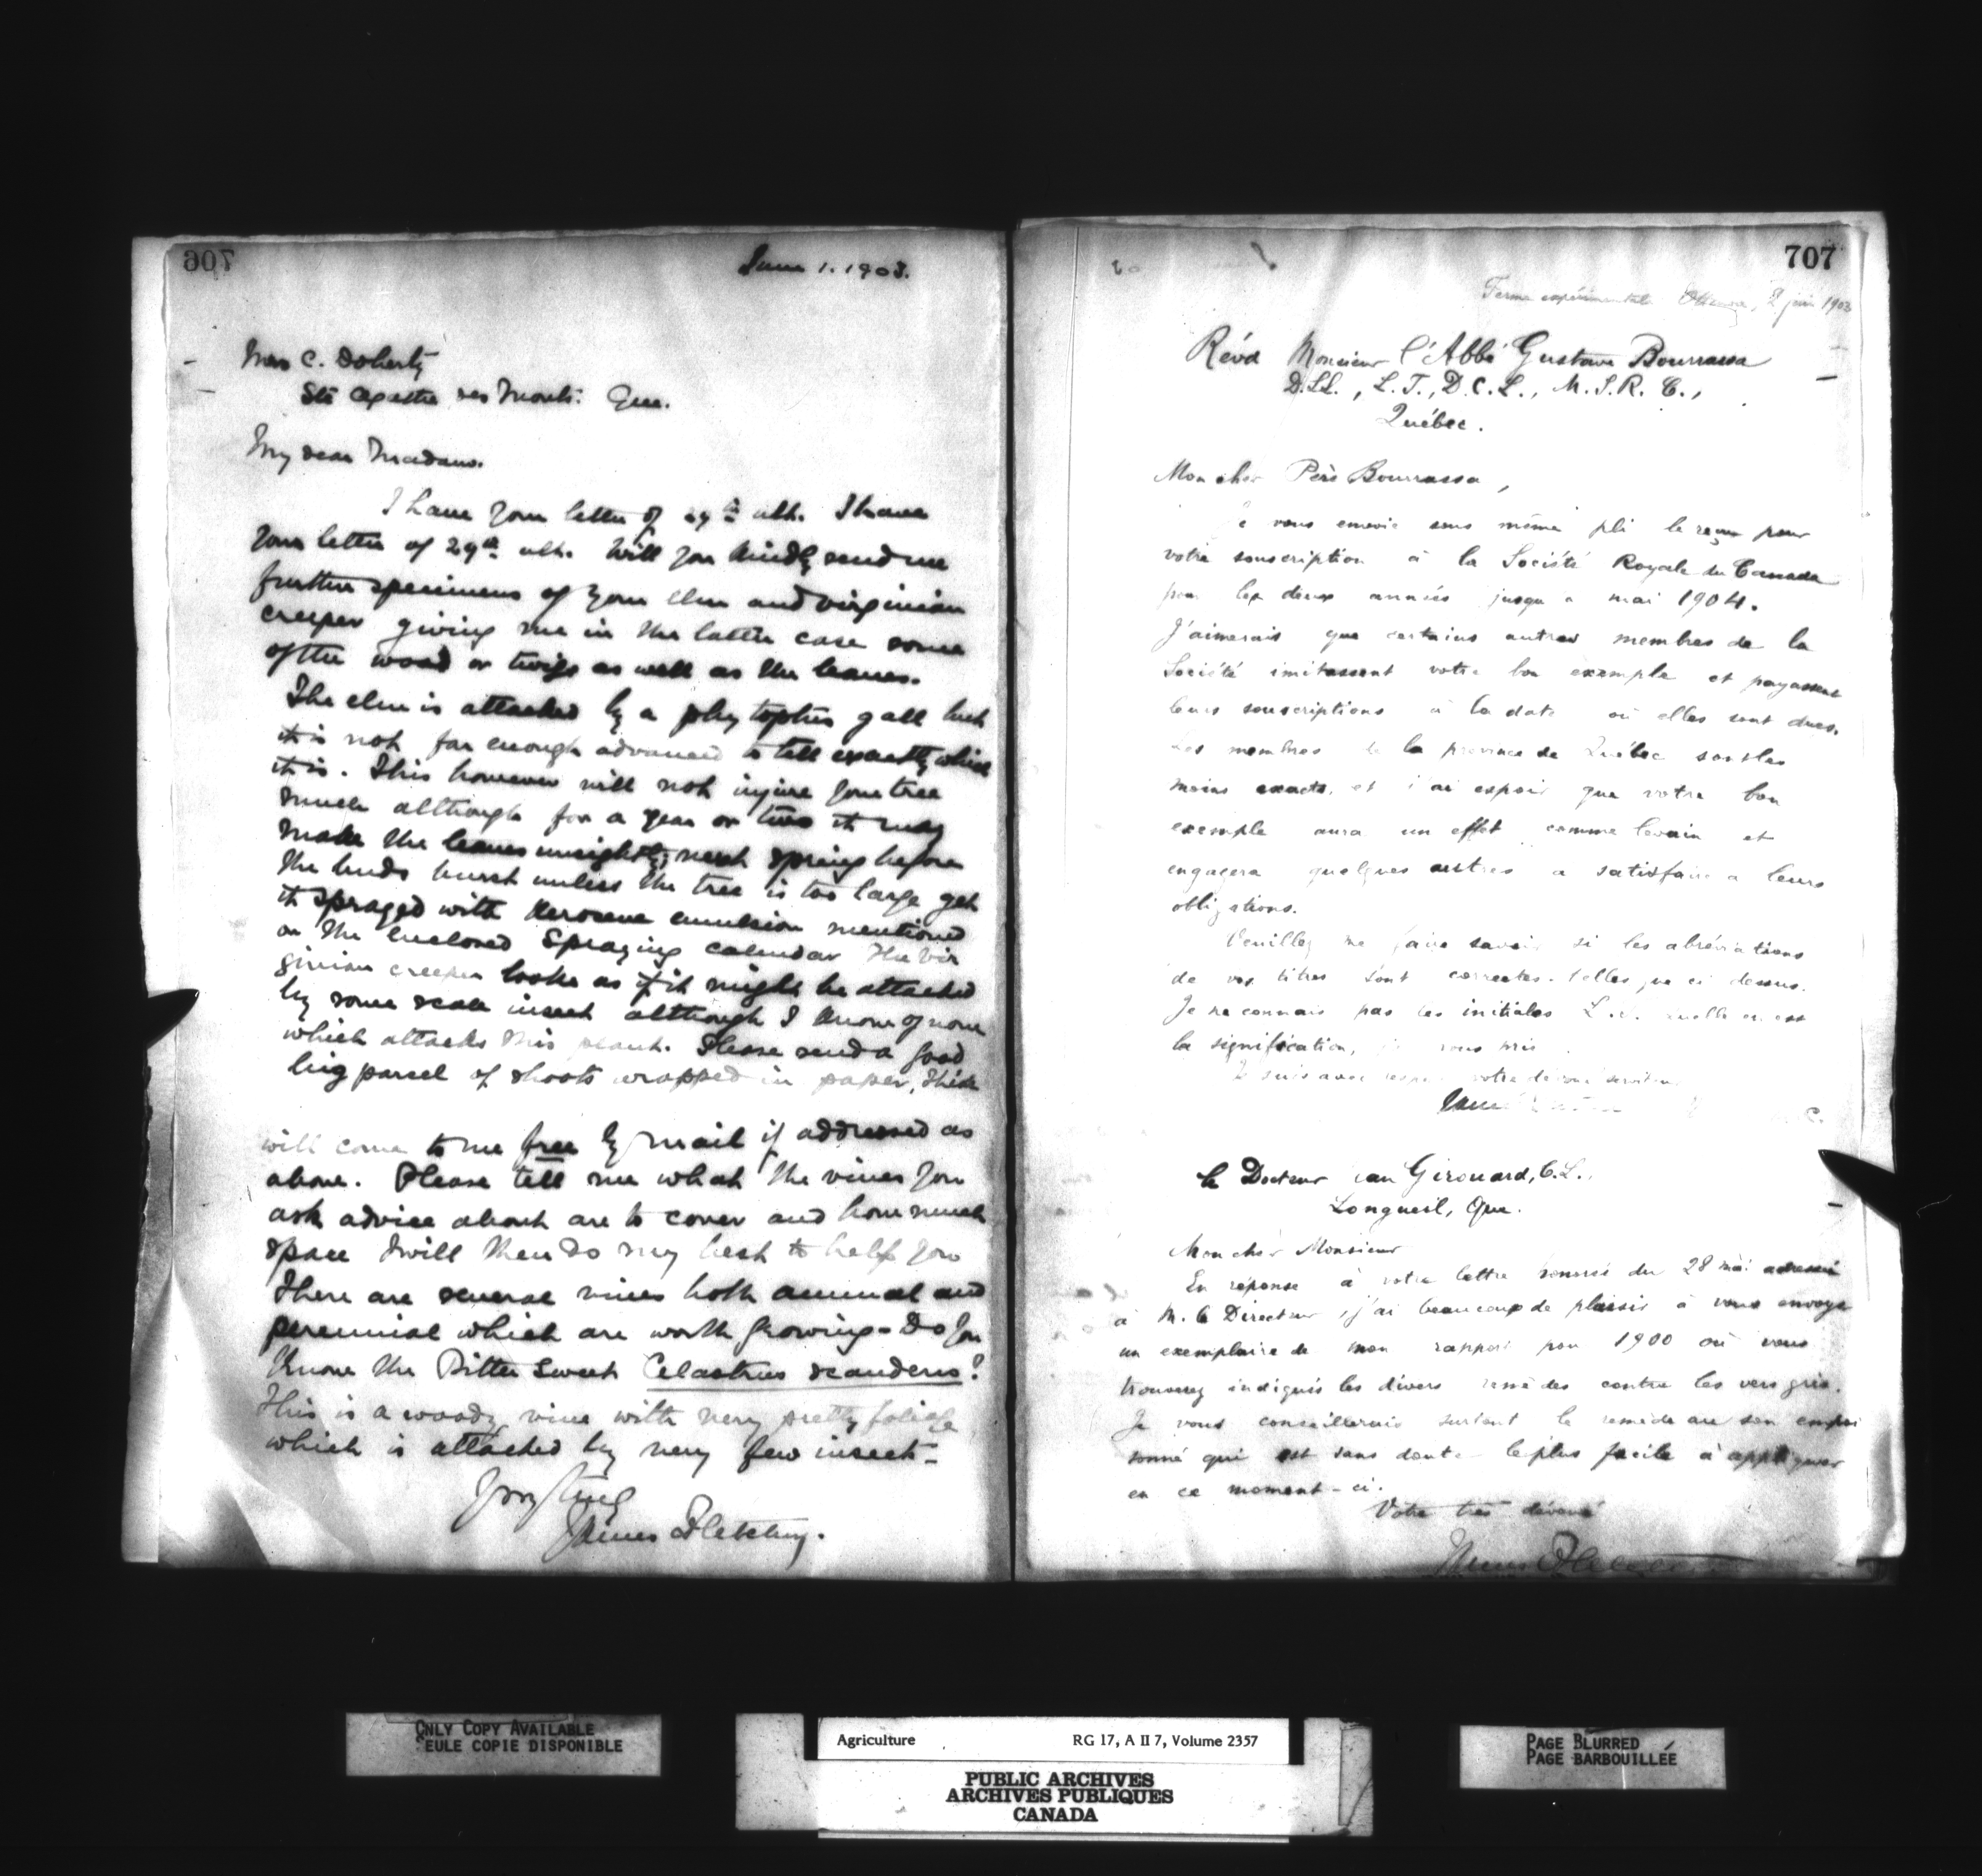 706
June 1. 1903.
Mrs C. Doherty
Ste Agathe des Monts. Que.
My dear Madam.
I have your letter of 29th ult. I have
your letter of 29th ult. Will you kindly send me
further specimens of your elm and virginian
creeper giving me in the latter case some
of the wood or twigs as well as the leaves.
The elm is attacked by a phytoptus gall but
it is not far enough advanced to tell exactly which
it is. This however will not injure your tree
much although for a year or two it may
make the leaves unsightly, next spring before
the buds burst unless the tree is too large get
it sprayed with Kerosene emulsion mentioned
on the enclosed Spraying calendar The Vir
ginian creeper looks as if it might be attacked
by some scale insect although I know of none
which attacks this plant. Please send a good
big parcel of shoots wrapped in paper, This
will come to me free by mail if addressed as
above. Please tell me what the vines you
ask advice about are to cover and how much
space I will then do my best to help you
There are several vines both annual and
perennial which are worth growing - Do you
know the Bitter Sweet Celastrus scandens?
This is a woody vine with very pretty foliage
which is attacked by very few insects -
Yrs truly
James Fletcher.
707
Ferme expérimentale Ottawa, 2 juin 1903
Révd Monsieur l'Abbé Gustave Bourrassa
D.LL., L.T., D.C.L., M.S.R.C.,
Québec.
Mon cher Père Bourrassa,
Je vous envoie sous même pli le reçu pour
votre souscription à la Société Royale du Canada
pour les deux années jusqu'a mai 1904.
J'aimerais que certains autres membres de la
Société imitassent votre bon exemple et payassent
leurs souscriptions à la date où elles sont dues.
Les membres de la province de Québec sont les
moins exacts, et j'ai espoir que votre bon
exemple aura un effet comme levain et
engagera quelques autres a satisfaire a leurs
obligations.
Veuillez me faire savoir si les abréviations
de vos titres sont correctes - telles que ci dessus.
Je ne connais pas les initiales L.T. quelle en est
la signification, je vous prie
Je suis avec respect votre dévoué serviteur
James
le Docteur Girouard, C.L.,
Longueil, Que.
Mon cher Monsieur
En réponse à votre lettre du 28 mai adressée
à M. le Directeur, j'ai beaucoup de plaisir à vous envoyer
un exemplaire de mon rapport pour 1900 où vous
trouverez indiqués les divers remèdes contre les vers gris.
Je vous conseillerais surtout le remède au son empoi
sonné qui est sans doute le plus facile à appliquer
en ce moment-ci.
Votre très dévoué
James Fletcher
ONLY COPY AVAILABLE
SEULE COPIE DISPONIBLE
Agriculture RG 17, A II 7, Volume 2357
PUBLIC ARCHIVES
ARCHIVES PUBLIQUES
CANADA
PAGE BLURRED
PAGE BARBOUILLÉE